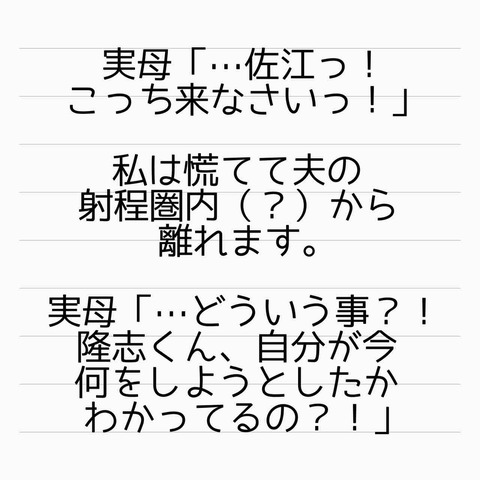 実母「…佐江っ！
こっち来なさいっ！」
私は慌てて夫の
射程圏内（？）から
離れます。
実母「…どういう事？！
隆志くん、自分が今
何をしようとしたか
わかってるの？！」